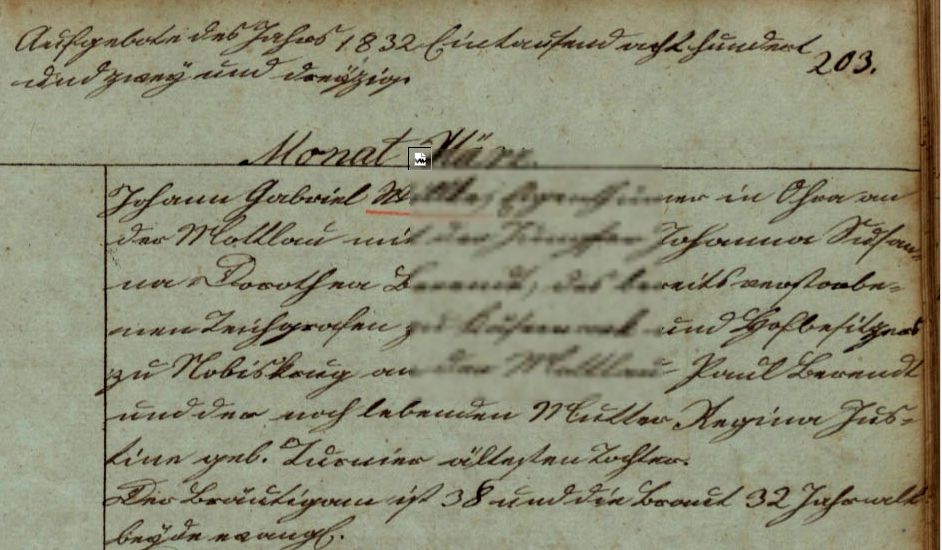 Aufgebote des Jahrs 1832 Eintausend acht hundert
und zwey und dreyzig
203.
Monat März.
Johann Gabriel in Ohra an
der Mottlau mit der Jungfer Johanna Susan
na Dorothea Berendt, des bereits verstorbe=
nen Teichgrafen zu und Hofbesitzers
zu Nobiskrug an der Mottlau Paul Berendt
und der noch lebenden Mutter Regina Jus=
tine geb. Turnier ältesten Tochter.
Der Bräutigam ist 38 und die Braut 32 Jahr alt
beyde evangl.